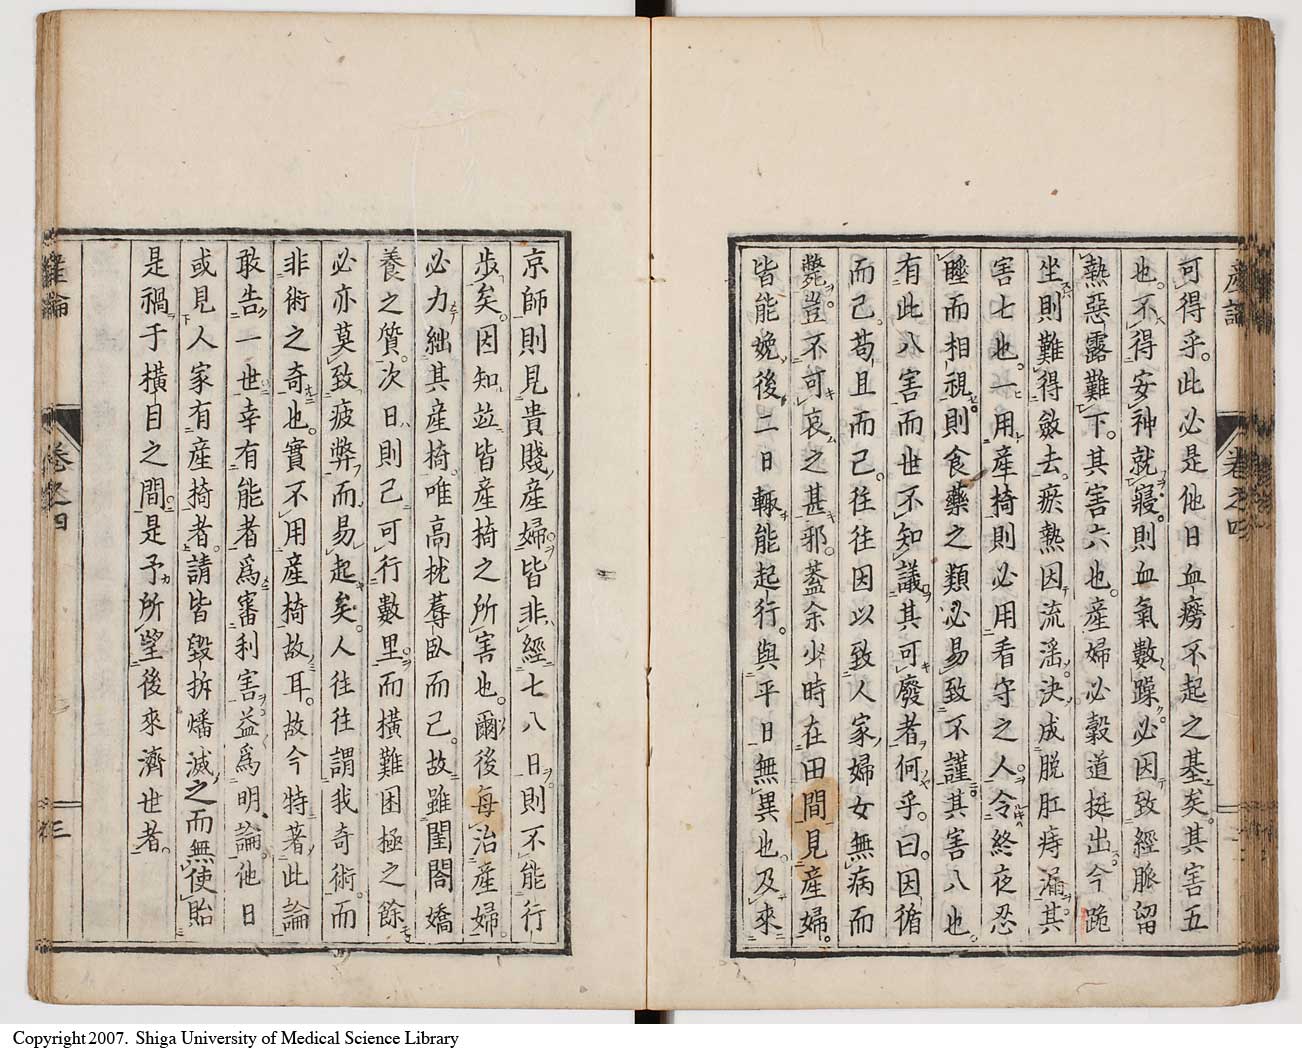 可得乎。此必是他日血癆不起之基矣。其害五
也。不得安神就寢。則血氣數躁。必因致經脈留
熱惡露難下。其害六也。產婦必穀道挺出。今跪
坐則難得斂去。瘀熱因流滛。決成脫肛痔漏。其
害七也。一用產椅則必用看守之人。令終夜忍
睡而相視。則食藥之類必易致不謹。其害八也。
有此八害而世不知議其可廢者何乎。曰因循
而己。苟且而己。往往因以致人家婦女無病而
斃。豈不可哀之甚邪。蓋余少時在田間見產婦。
皆能娩後二日輒能起行。與平日無異也。及來
京師則見貴賤產婦皆非經七八日。則不能行
步矣。因知並皆產椅之所害也。爾後每治產婦。
必力絀其產椅。唯高枕蓐臥而己。故雖閨閤嬌
養之質。次日則己可行數里。而橫難困極之餘
必亦莫致疲弊而易起矣。人往往謂我奇術。而
非術之奇也。實不用產椅故耳。故今特著此論
敢告一世。幸有能者為審利害益為明論。他日
或見人家有產椅者。請皆毀拆燔滅之而無使貽
是禍于橫目之間。是予所望後來濟世者。
產論
卷之四
三
產論
卷之四
Copyright 2007. Shiga University of Medical Science Library